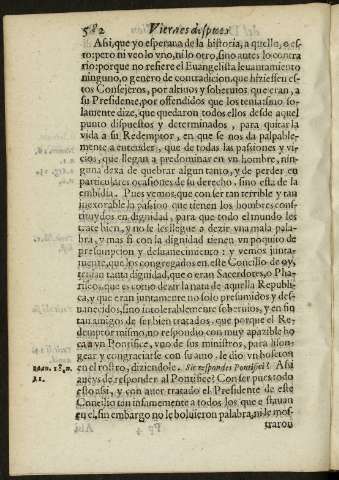 582 Viernes despues
Assi, que yo esperaua de la historia, a quello, o es-
to: pero ni veo lo vno, ni lo otro, sino antes lo contra
rio: porque no refiere el Euangelista leuantamiento
ninguno, o genero de contradicion, que hiziessen es-
tos Consejeros, por altiuos y soberuios que eran, a
su Presidente, por offendidos que los tenia: sino so-
lamente dize, que quedaron todos ellos desde aquel
punto dispuestos y determinados, para quitar la
vida a su Redemptor, en que se nos da palpable-
mente a entender, que de todas las passiones y vi-
cios, que llegan a predominar en vn hombre, nin-
guna dexa de quebrar algun tanto, y de perder en
particulares ocasiones de su derecho, sino esta de la
embidia. Pues vemos, que con ser tan terrible y tan
inexorable la passion que tienen los hombres cons-
tituydos en dignidad, para que todo el mundo los
trate bien, y no se les llegue a dezir vna mala pala-
bra, y mas si con la dignidad tienen vn poquito de
presumpcion y desuanecimiento: y vemos junta-
mente, que los congregados en este Concilio de oy,
tenian tanta dignidad, que o eran Sacerdotes, o Pha-
riseos, que es como dezir la nata de aquella Republi-
ca, y que eran juntamente no solo presumidos y des-
uanecidos, sino intolerablemente soberuios, y en fin
tan amigos de ser bien tratados, que porque el Re-
demptor mismo, no respondio con muy apazible bo
ca a vn Pontifice, vno de sus ministros, para lison-
gear y congraciarse con su amo, le dio vn bofeton
Ioan. 18. n. en el rostro, diziendole. Sic respondes Pontifici? Assi
21. aueys de responder al Pontifice? Con ser pues todo
esto assi, y con auer tratado el Presidente de este
Concilio tan infamemente a todos los que estauan
en el, sin embargo no le boluieron palabra, ni le mos-
Pp 4 traron